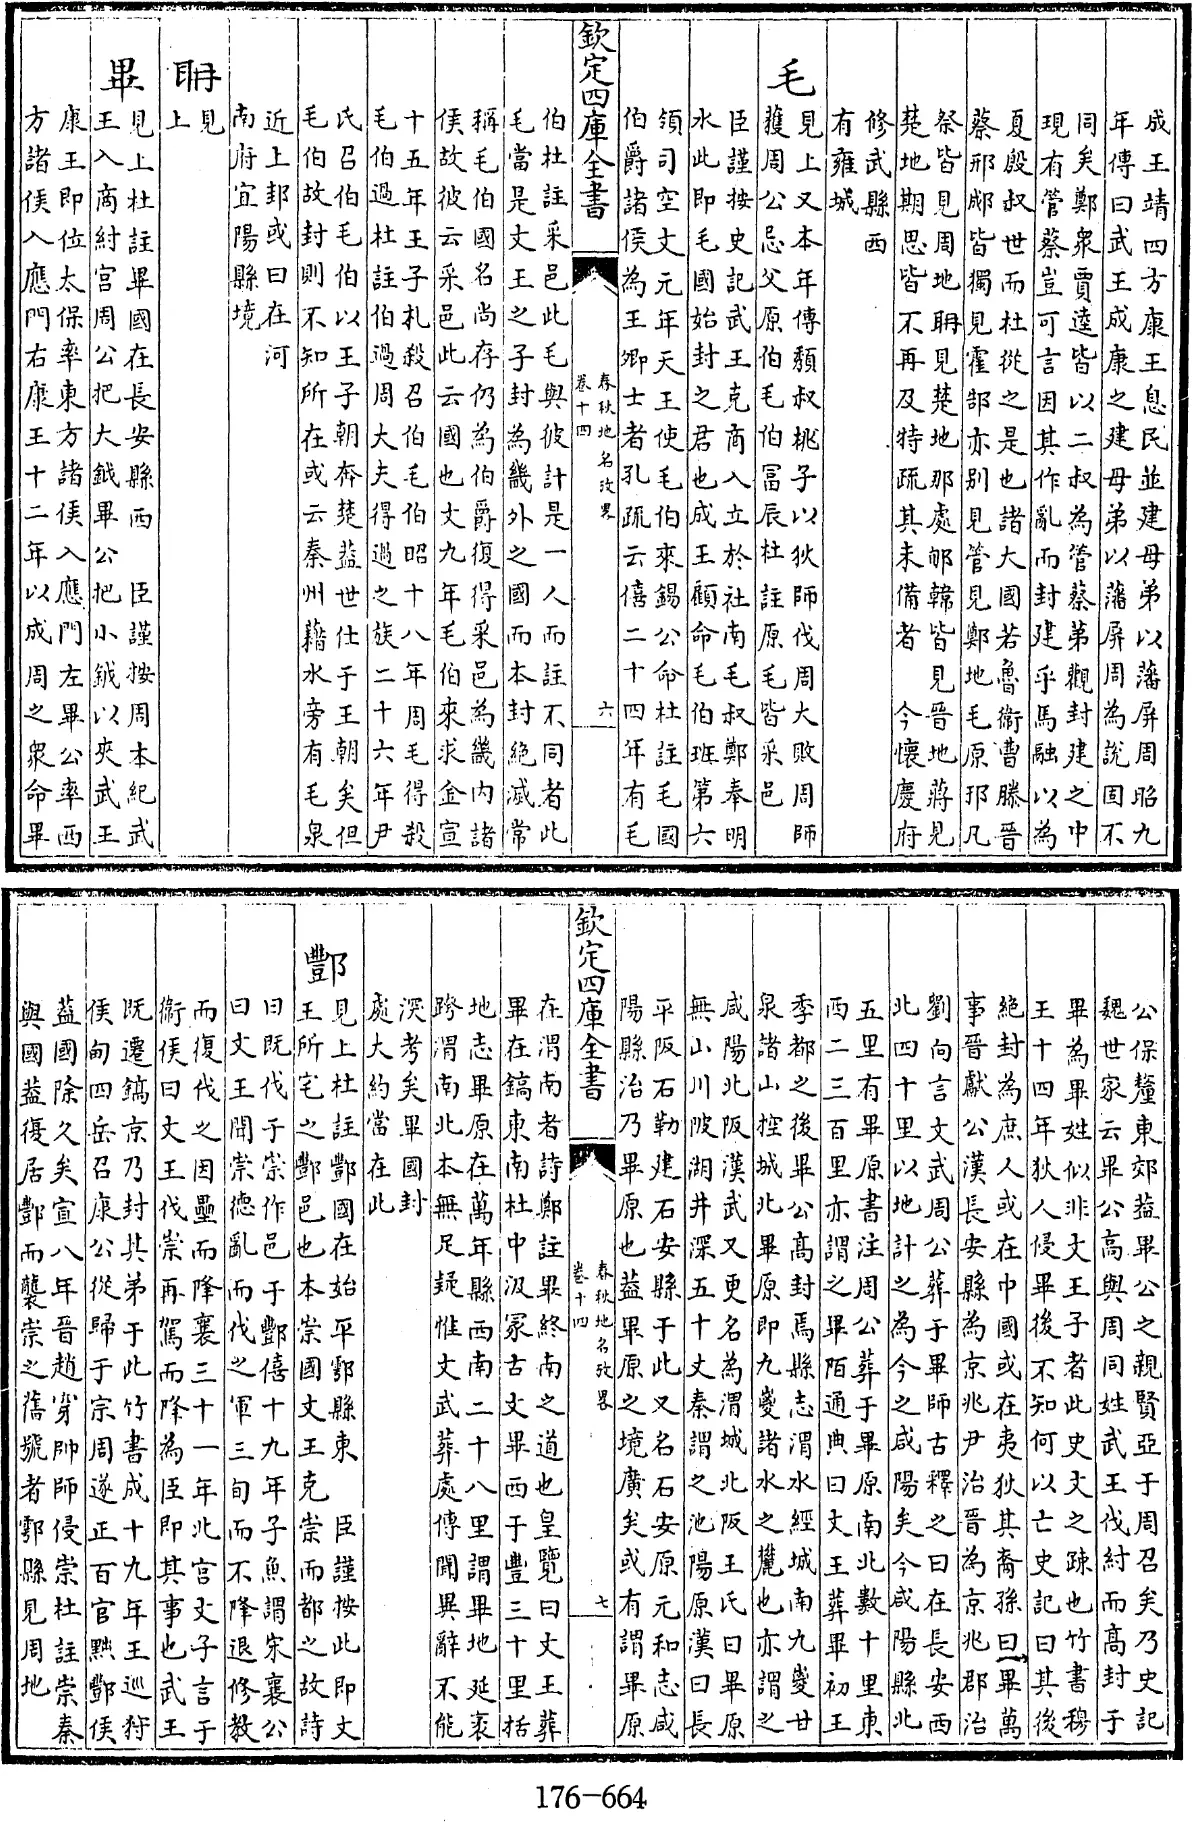 成王靖四方康王息民並建母弟以藩屏周昭九
年傳曰武王成康之建母弟以藩屏周為說固不
同矣鄭衆賈逵皆以二叔為管蔡弟觀封建之中
現有管蔡豈可言因其作亂而封建乎馬融以為
夏殷叔世而杜從之是也諸大國若魯衞曹滕晉
蔡邢郕皆獨見霍郜亦别見管見鄭地毛原邘凡
祭皆見周地耼見楚地那處郇韓皆見晉地蔣見
楚地期思皆不再及特疏其未備者　今懷慶府
修武縣西
有雍城
毛
見上又本年傳頹叔桃子以狄師伐周大敗周師
獲周公忌父原伯毛伯富辰杜註原毛皆采邑
臣謹按史記武王克商入立於社南毛叔鄭奉明
水此即毛國始封之君也成王顧命毛伯班第六
領司空文元年天王使毛伯來錫公命杜註毛國
伯爵諸侯為王卿士者孔疏云僖二十四年有毛
欽定四庫全書
春秋地名攷畧
卷十四
六
伯杜註采邑此毛與彼計是一人而註不同者此
毛當是文王之子封為畿外之國而本封絶滅常
稱毛伯國名尚存仍為伯爵復得采邑為畿内諸
侯故彼云采邑此云國也文九年毛伯來求金宣
十五年王子札殺召伯毛伯昭十八年周毛得殺
毛伯過杜註伯過周大夫得過之族二十六年尹
氏召伯毛伯以王子朝奔楚葢世仕于王朝矣但
毛伯故封則不知所在或云秦州藉水旁有毛泉
近上邽或曰在河
南府宜陽縣境
耼
見
上
畢
見上杜註畢國在長安縣西　臣謹按周本紀武
王入商紂宫周公把大鉞畢公把小鉞以夾武王
康王即位太保率東方諸侯入應門左畢公率西
方諸侯入應門右康王十二年以成周之衆命畢
公保釐東郊葢畢公之親賢亞于周召矣乃史記
魏世家云畢公高與周同姓武王伐紂而髙封于
畢為畢姓似非文王子者此史文之疎也竹書穆
王十四年狄人侵畢後不知何以亡史記曰其後
絶封為庶人或在中國或在夷狄其裔孫曰畢萬
事晉獻公漢長安縣為京兆尹治晉為京兆郡治
劉向言文武周公葬于畢師古釋之曰在長安西
北四十里以地計之為今之咸陽矣今咸陽縣北
五里有畢原書注周公葬于畢原南北數十里東
西二三百里亦謂之畢陌通典曰文王葬畢初王
季都之後畢公高封焉縣志渭水經城南九嵕甘
泉諸山控城北畢原即九嵕諸水之麓也亦謂之
咸陽北阪漢武又更名為渭城北阪王氏曰畢原
無山川陂湖井深五十丈秦謂之池陽原漢曰長
平阪石勒建石安縣于此又名石安原元和志咸
陽縣治乃畢原也葢畢原之境廣矣或有謂畢原
欽定四庫全書
春秋地名攷畧
卷十四
七
在渭南者詩鄭註畢終南之道也皇覽曰文王葬
畢在鎬東南杜中汲冢古文畢西于豐三十里括
地志畢原在萬年縣西南二十八里謂畢地延袤
跨渭南北本無足疑惟文武葬處傳聞異辭不能
深考矣畢國封
處大約當在此
酆
見上杜註酆國在始平鄠縣東　臣謹按此即文
王所宅之酆邑也本崇國文王克崇而都之故詩
曰既伐于崇作邑于酆僖十九年子魚謂宋襄公
曰文王聞崇德亂而伐之軍三旬而不降退修教
而復伐之因壘而降襄三十一年北宫文子言于
衞侯曰文王伐崇再駕而降為臣即其事也武王
既遷鎬京乃封其弟于此竹書成十九年王巡狩
侯甸四岳召康公從歸于宗周遂正百官黜酆侯
葢國除久矣宣八年晉趙穿帥師侵崇杜註崇秦
與國葢復居酆而襲崇之舊號者鄠縣見周地
176-664